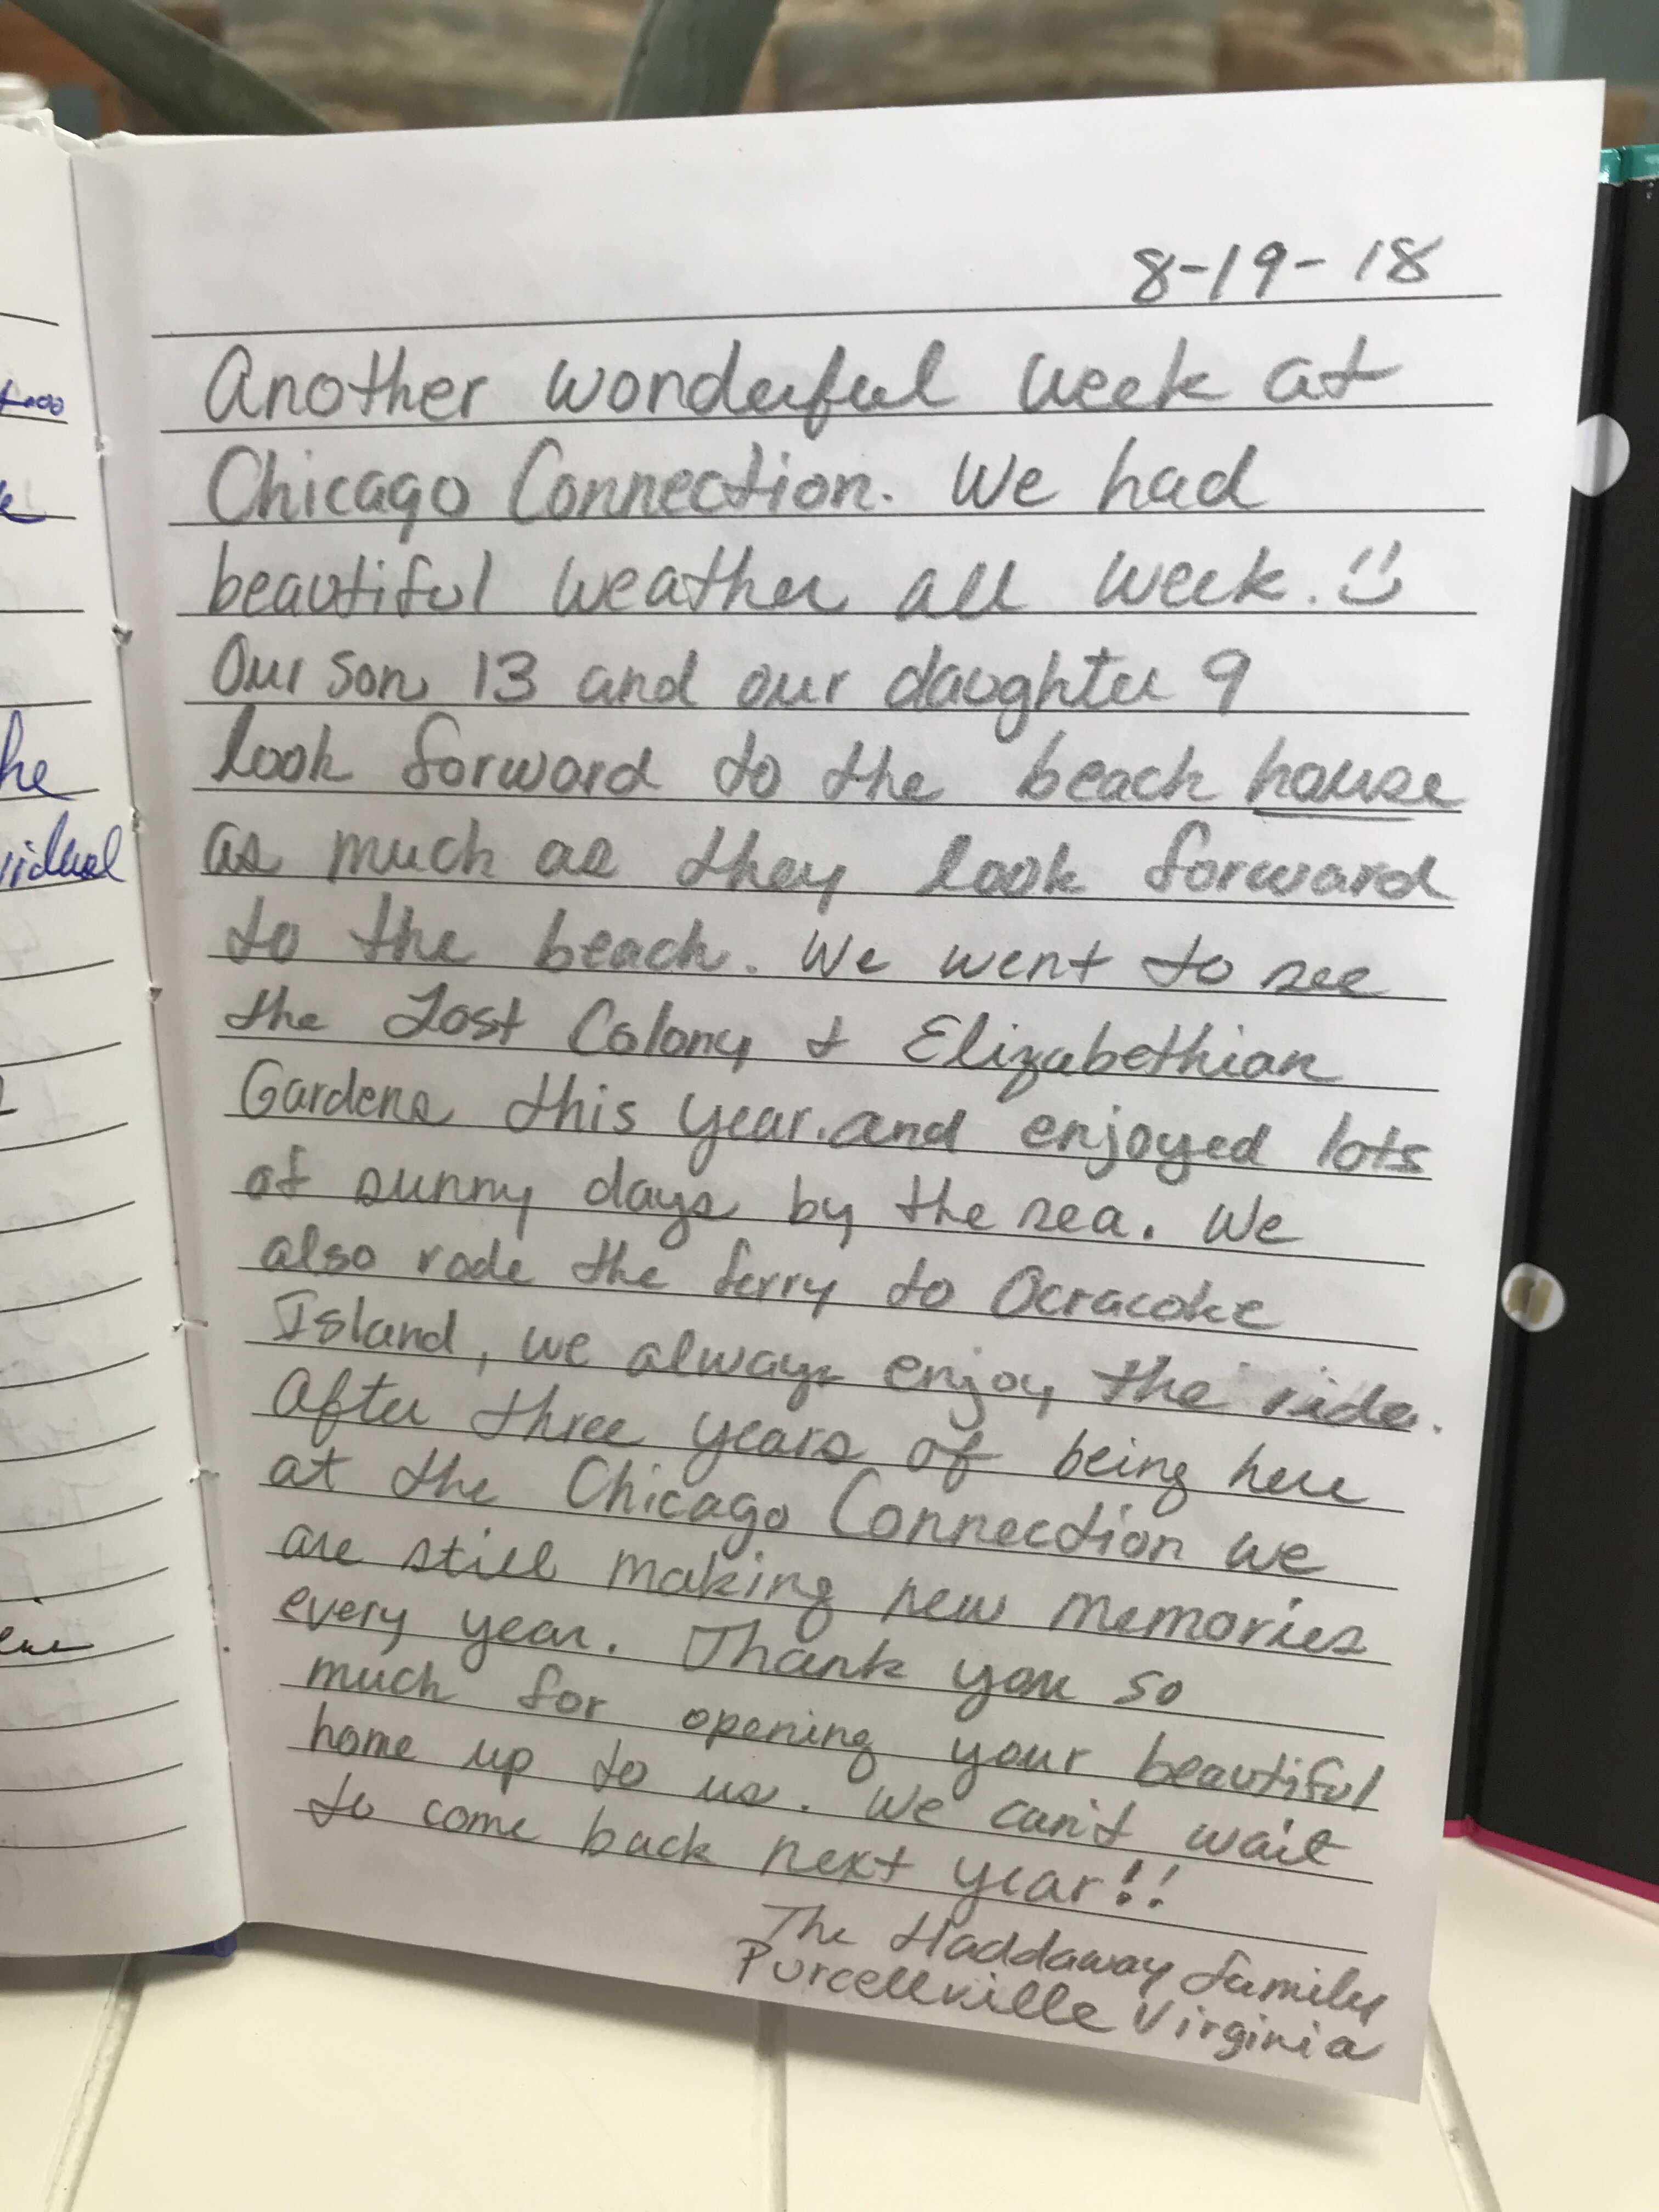 8-19-18
Another wonderful week at
Chicago Connection. We had
beautiful weather all week. :)
Our son 13 and our daughter 9
look forward to the beach house
as much as they look forward
to the beach. We went to see
the Lost Colony + Elizabethian
Gardens this year. and enjoyed lots
of sunny days by the sea. We
also rode the ferry to Ocracoke
Island, we always enjoy the ride.
After three years of being here
at the Chicago Connection we
are still making new memories
every year. Thank you so
much for opening your beautiful
home up to us. We can't wait
to come back next year!!
The Haddaway Family
Purcellville Virginia